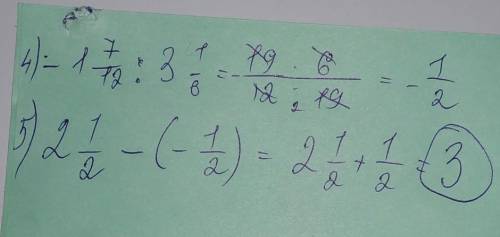 4) - 1 7/12 : 3 1/6 = - 19 · 6 / 12 · 19 = - 1/2
2
5) 2 1/2 - (- 1/2) = 2 1/2 + 1/2 = 3